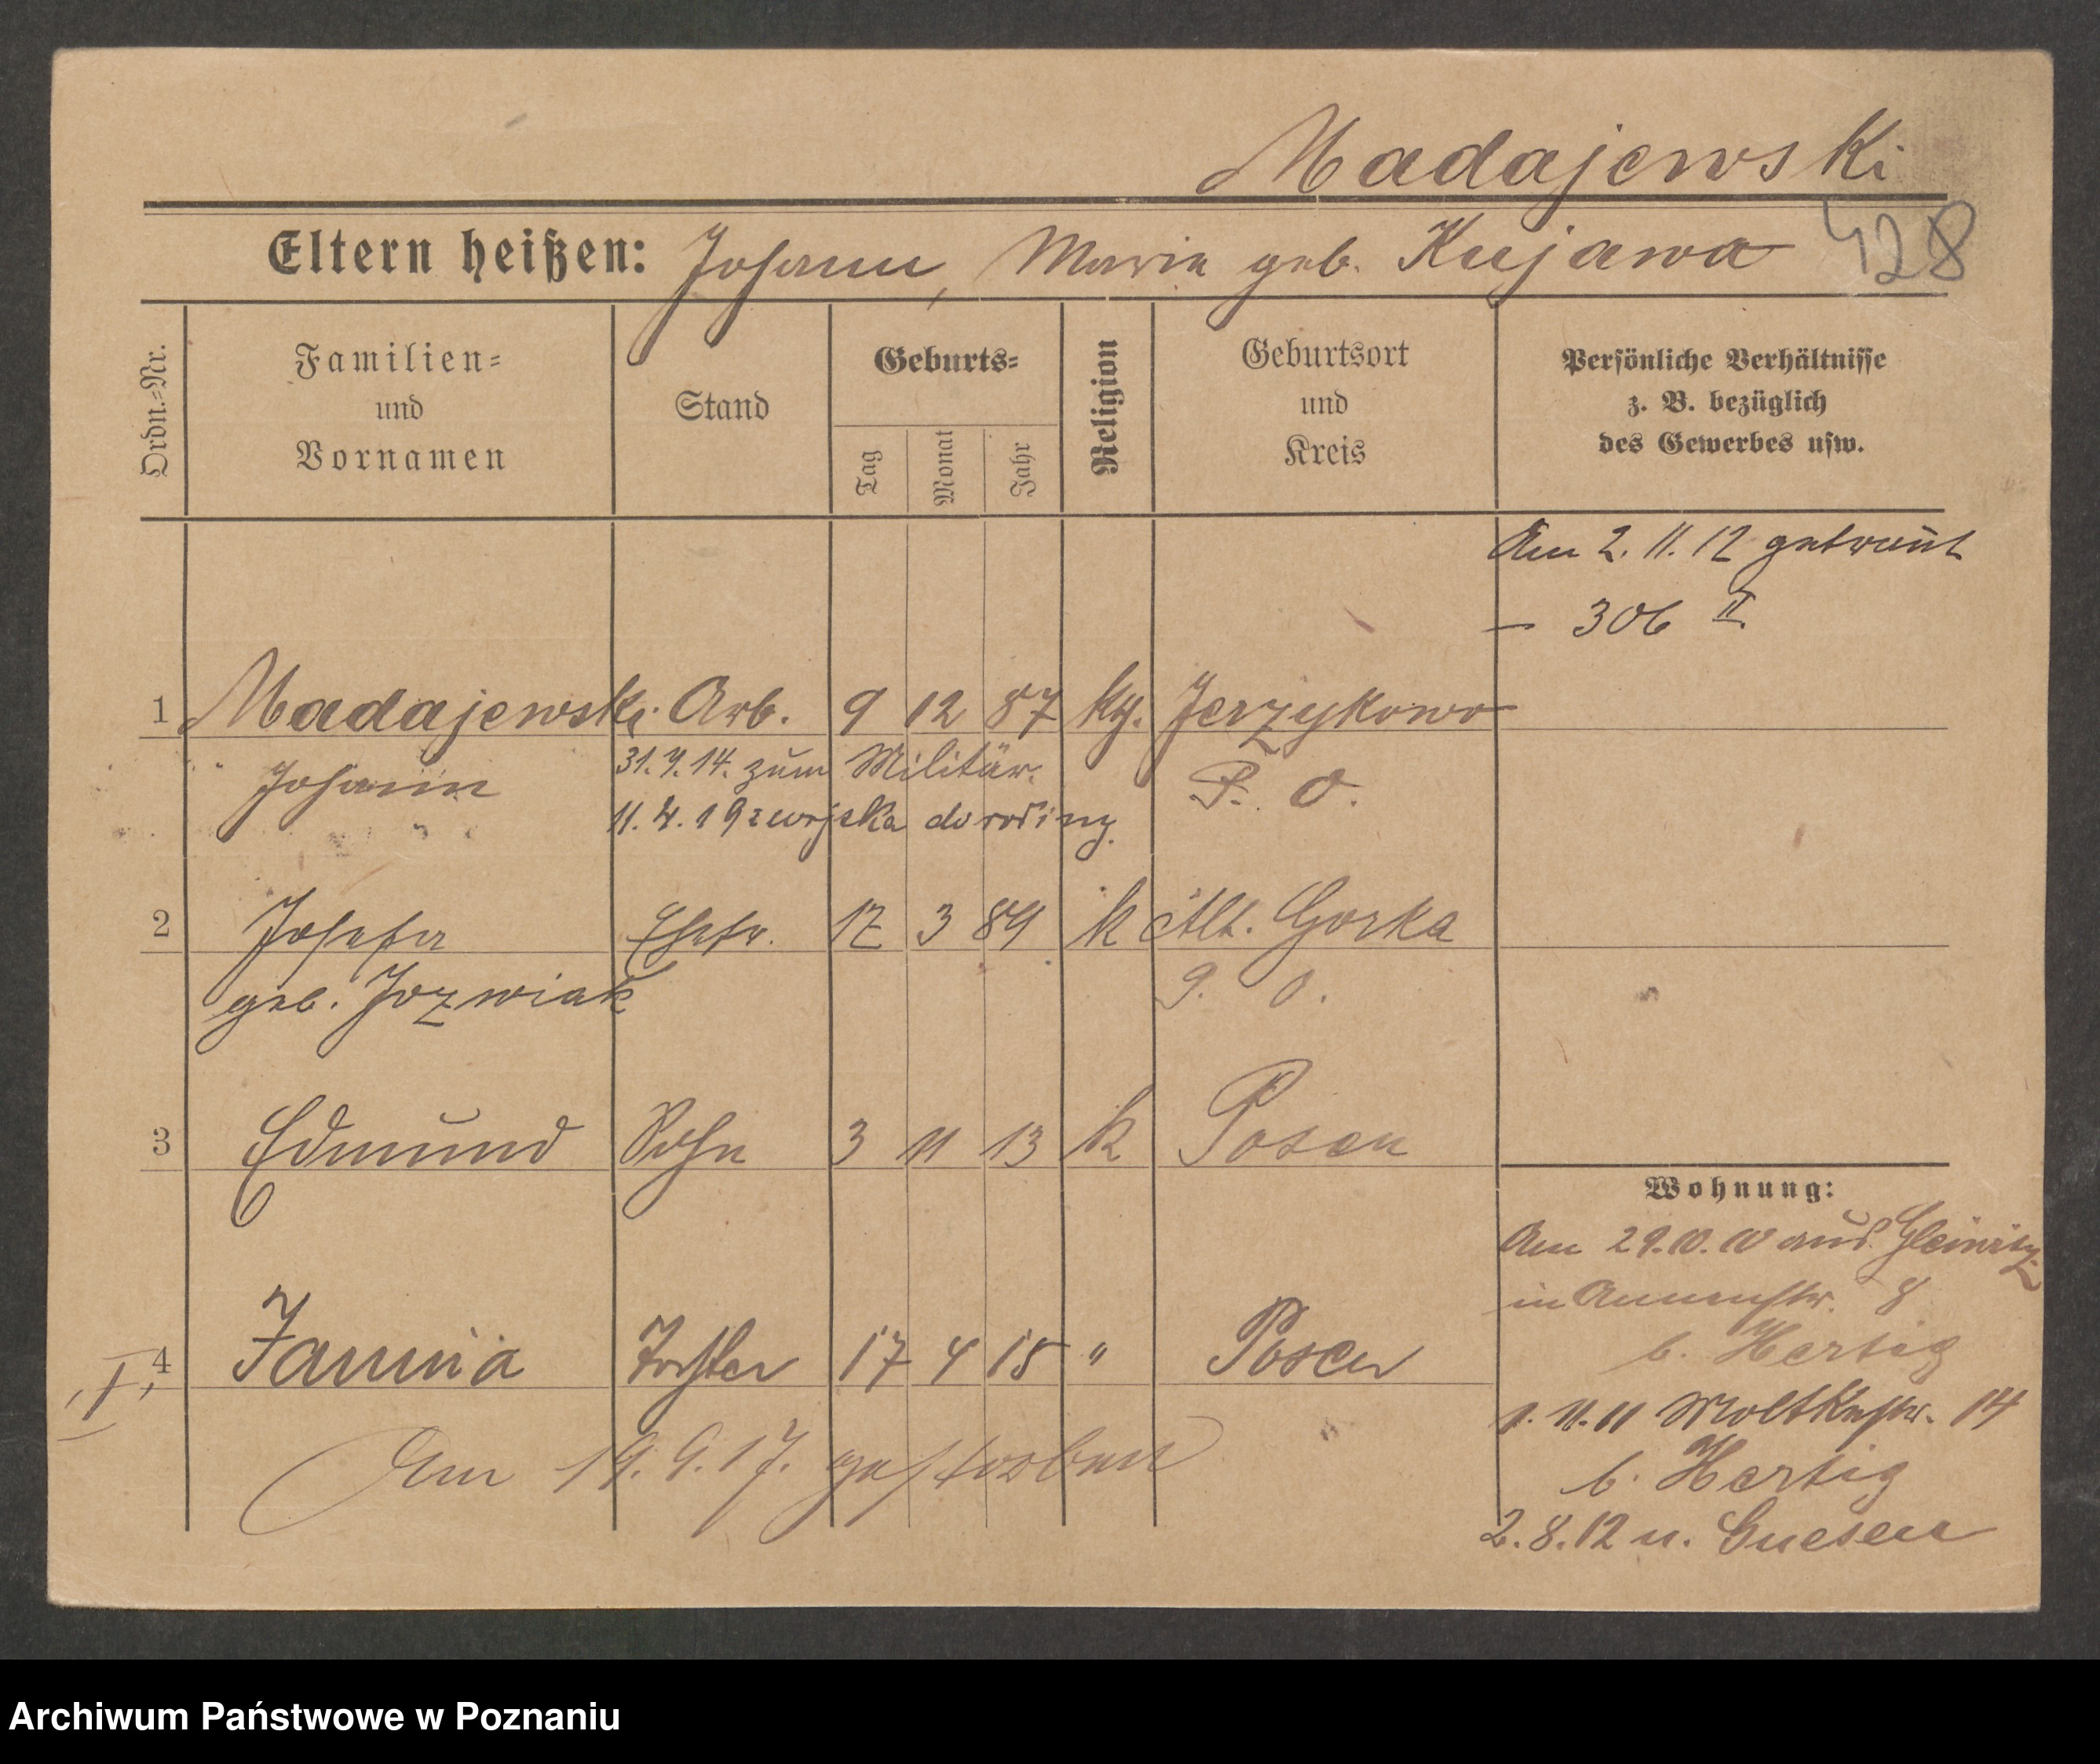 Madajewski
Eltern heißen: Johann, Maria geb. Kujawa
428
Ordn.-Nr.
Familien- und Vornamen
Stand
Geburts-
Tag
Monat
Jahr
Religion
Geburtsort und Kreis
Persönliche Verhältnisse
z. B. bezüglich
des Gewerbes usw.
Am 2. 11. 12 getraut
– 306 II.
1 Madajewski Arb. 9 12 87 kg. Jerzykowo
Johann
31. 7. 14. zum Militär.
P. O.
11. 4. 19 z wojska do rodziny.
2 Josefa Ehefr. 17 3 89 k Alt. Gorka
geb. Jozwiak
P. O.
3 Edmund Sohn 3 11 13 k Posen
Wohnung:
Am 29. 10. 10 aus Gleinitz
in Annenstr. 8
b. Hertig
4 Janina Tochter 17 4 15 " Posen
1. 11. 11 Moltkestr. 14
Am 19. 9. 17. gestorben
b. Hertig
2. 8. 12 n. Gnesen
Archiwum Państwowe w Poznaniu